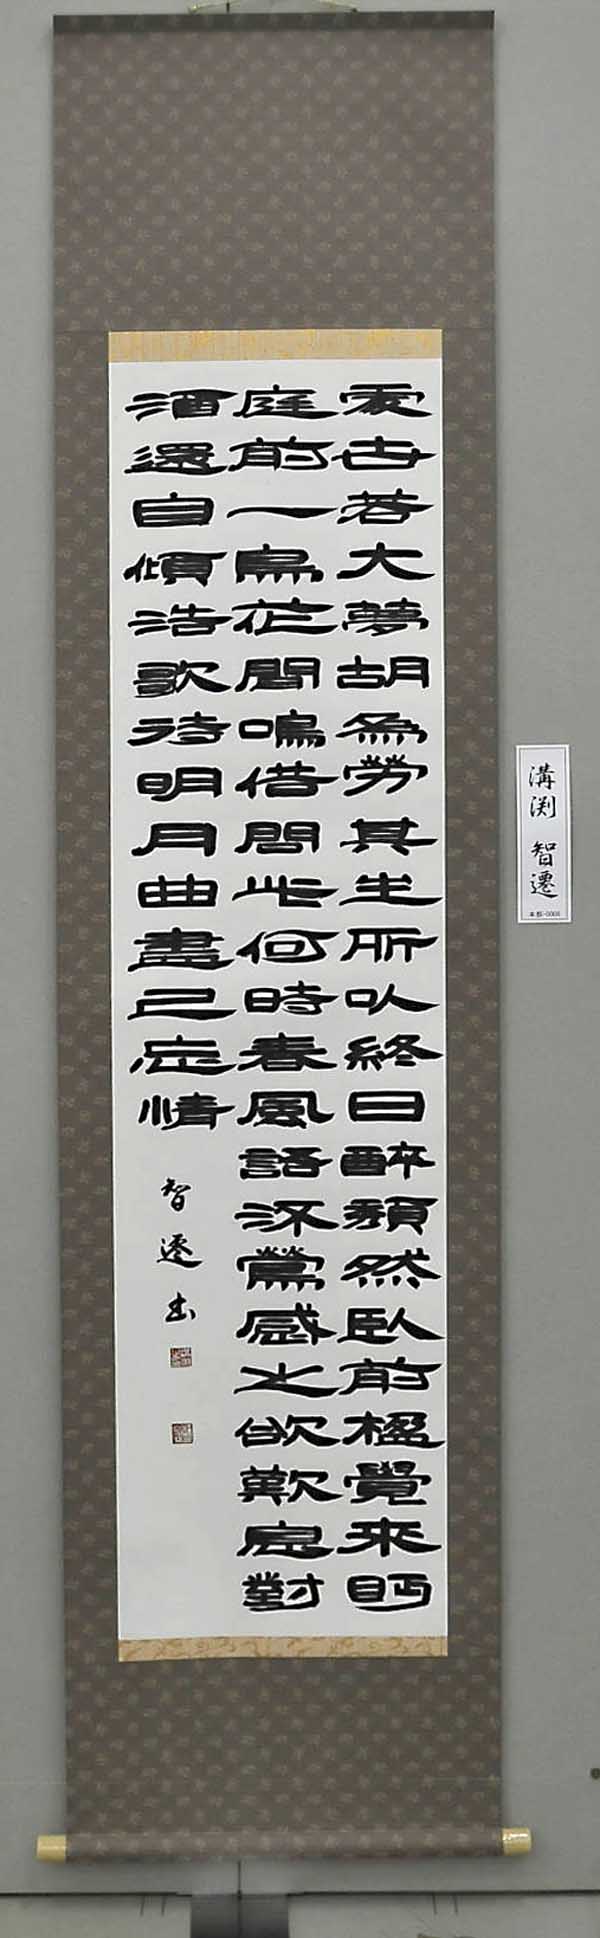 處世若大夢胡為勞其生所以終日醉頹然臥前楹覺來眄
庭前一鳥花間鳴借問此何時春風語流鶯感之欲歎息對
酒還自傾浩歌待明月曲盡已忘情
智遷書
溝渕 智遷